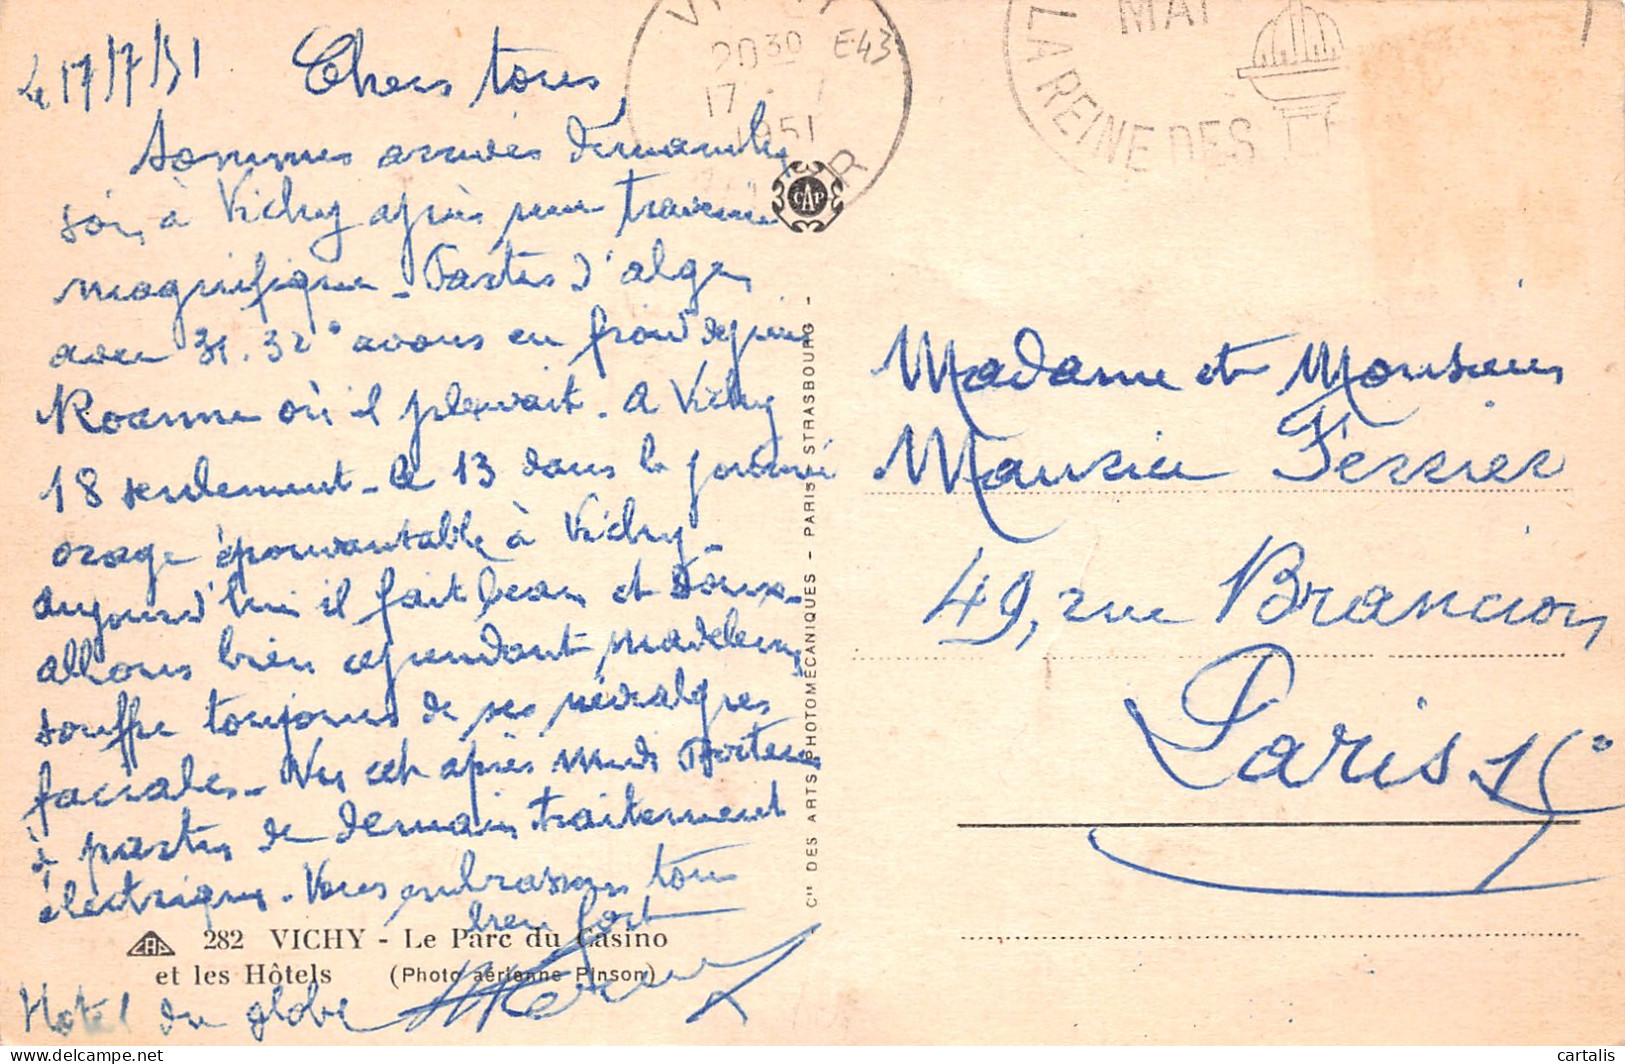 le 17/7/51 Chers tous
Sommes arrivés dimanche
soir à Vichy après une traversée
magnifique - Partis d'alger
avec 31.32° avons eu froid depuis
Roanne où il pleuvait. A Vichy
18 seulement - le 13 dans la journée
orage épouvantable à Vichy -
aujourd'hui il fait beau et doux -
allons bien cependant madeleine
souffre toujours de ses névralgies
faciales - Vu cet après midi Docteur
à partir de demain traitement
électrique. Vous embrassons tous
bien fort
Hotel du globe
282 VICHY - Le Parc du Casino
et les Hôtels (Photo aérienne Pinson)
Cie DES ARTS PHOTOMÉCANIQUES - PARIS - STRASBOURG -
CAP
CAP
VICHY
20 30
17 - 7
1951
E43
MAI
LA REINE DES
Madame et Monsieur
Maurice Ferrier
49, rue Brancion
Paris 15e
cartalis